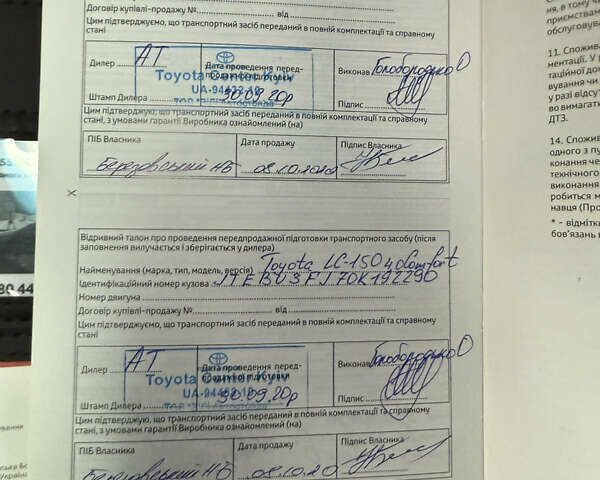 Договір купівлі-продажу № від
Цим підтверджуємо, що транспортний засіб переданий в повній комплектації та справному
стані
Дилер АТ
Дата проведення перед-
продажної підготовки
Toyota Center Kyiv
UA-94432-19
30.09.20р
Штамп Дилера
Виконав Голобородько О
Підпис
Цим підтверджую, що транспортний засіб переданий в повній комплектації та справному
стані, з умовами гарантії Виробника ознайомлений (на)
ПІБ Власника
Березовський НБ
Дата продажу
08.10.2020
Підпис Власника
Відривний талон про проведення передпродажної підготовки транспортного засобу (після
заповнення вилучається і зберігається у дилера)
Найменування (марка, тип, модель, версія) Toyota LC-150 Comfort
Ідентифікаційний номер кузова JTEBU3FJ70K192290
Номер двигуна
Договір купівлі-продажу № від
Цим підтверджуємо, що транспортний засіб переданий в повній комплектації та справному
стані
Дилер АТ
Дата проведення перед-
продажної підготовки
Toyota Center Kyiv
UA-94432-19
30.09.20р
Штамп Дилера
Виконав Голобородько О
Підпис
Цим підтверджую, що транспортний засіб переданий в повній комплектації та справному
стані, з умовами гарантії Виробника ознайомлений (на)
ПІБ Власника
Березовський НБ
Дата продажу
08.10.20
Підпис Власника
11. Спожив
ментації. У
таційної до
вування чи
у разі відсу
во вимагати
ДТЗ.
14. Спожив
одного з пу
конання че
технічного
виконання
робиться м
навця (Про
* - відмітки
бов'язань